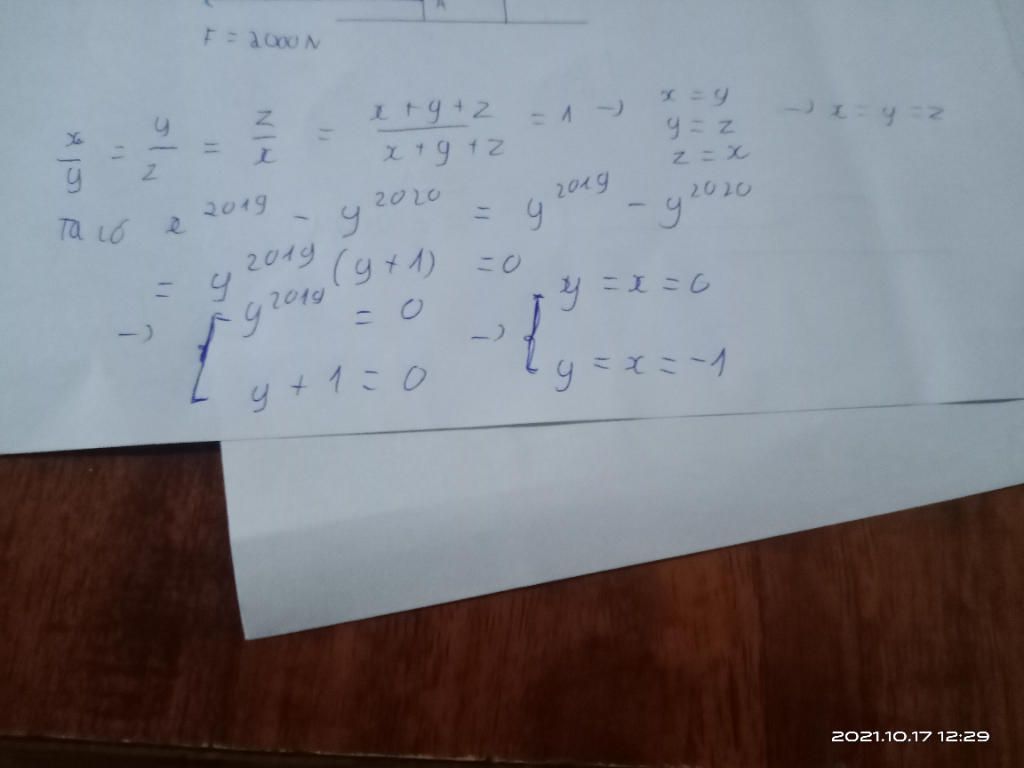 A
F = 2000N
x/y = y/z = z/x = x+y+z/x+y+z = 1 → x = y y = z z = x → x = y = z
Ta có x^2019 - y^2020 = y^2019 - y^2020
= y^2019 (y+1) = 0
→ [ y^2019 = 0 → [ y = x = 0
y + 1 = 0 y = x = -1
2021.10.17 12:29